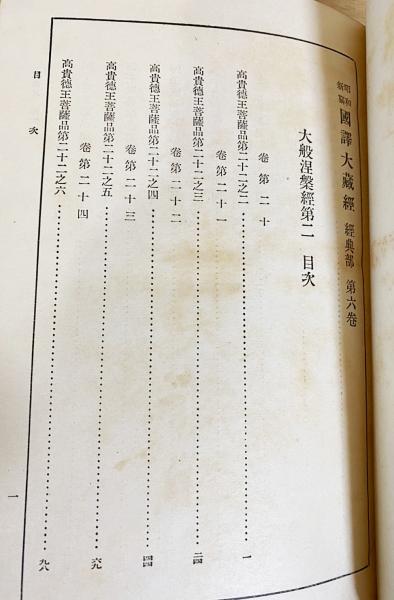 昭和新纂 國譯大藏經 經典部 第六卷
大般涅槃經第二 目次
卷第二十
高貴德王菩薩品第二十二之二………一
卷第二十一
高貴德王菩薩品第二十二之三………二四
卷第二十二
高貴德王菩薩品第二十二之四………四四
卷第二十三
高貴德王菩薩品第二十二之五………六九
卷第二十四
高貴德王菩薩品第二十二之六………九八
目次
一